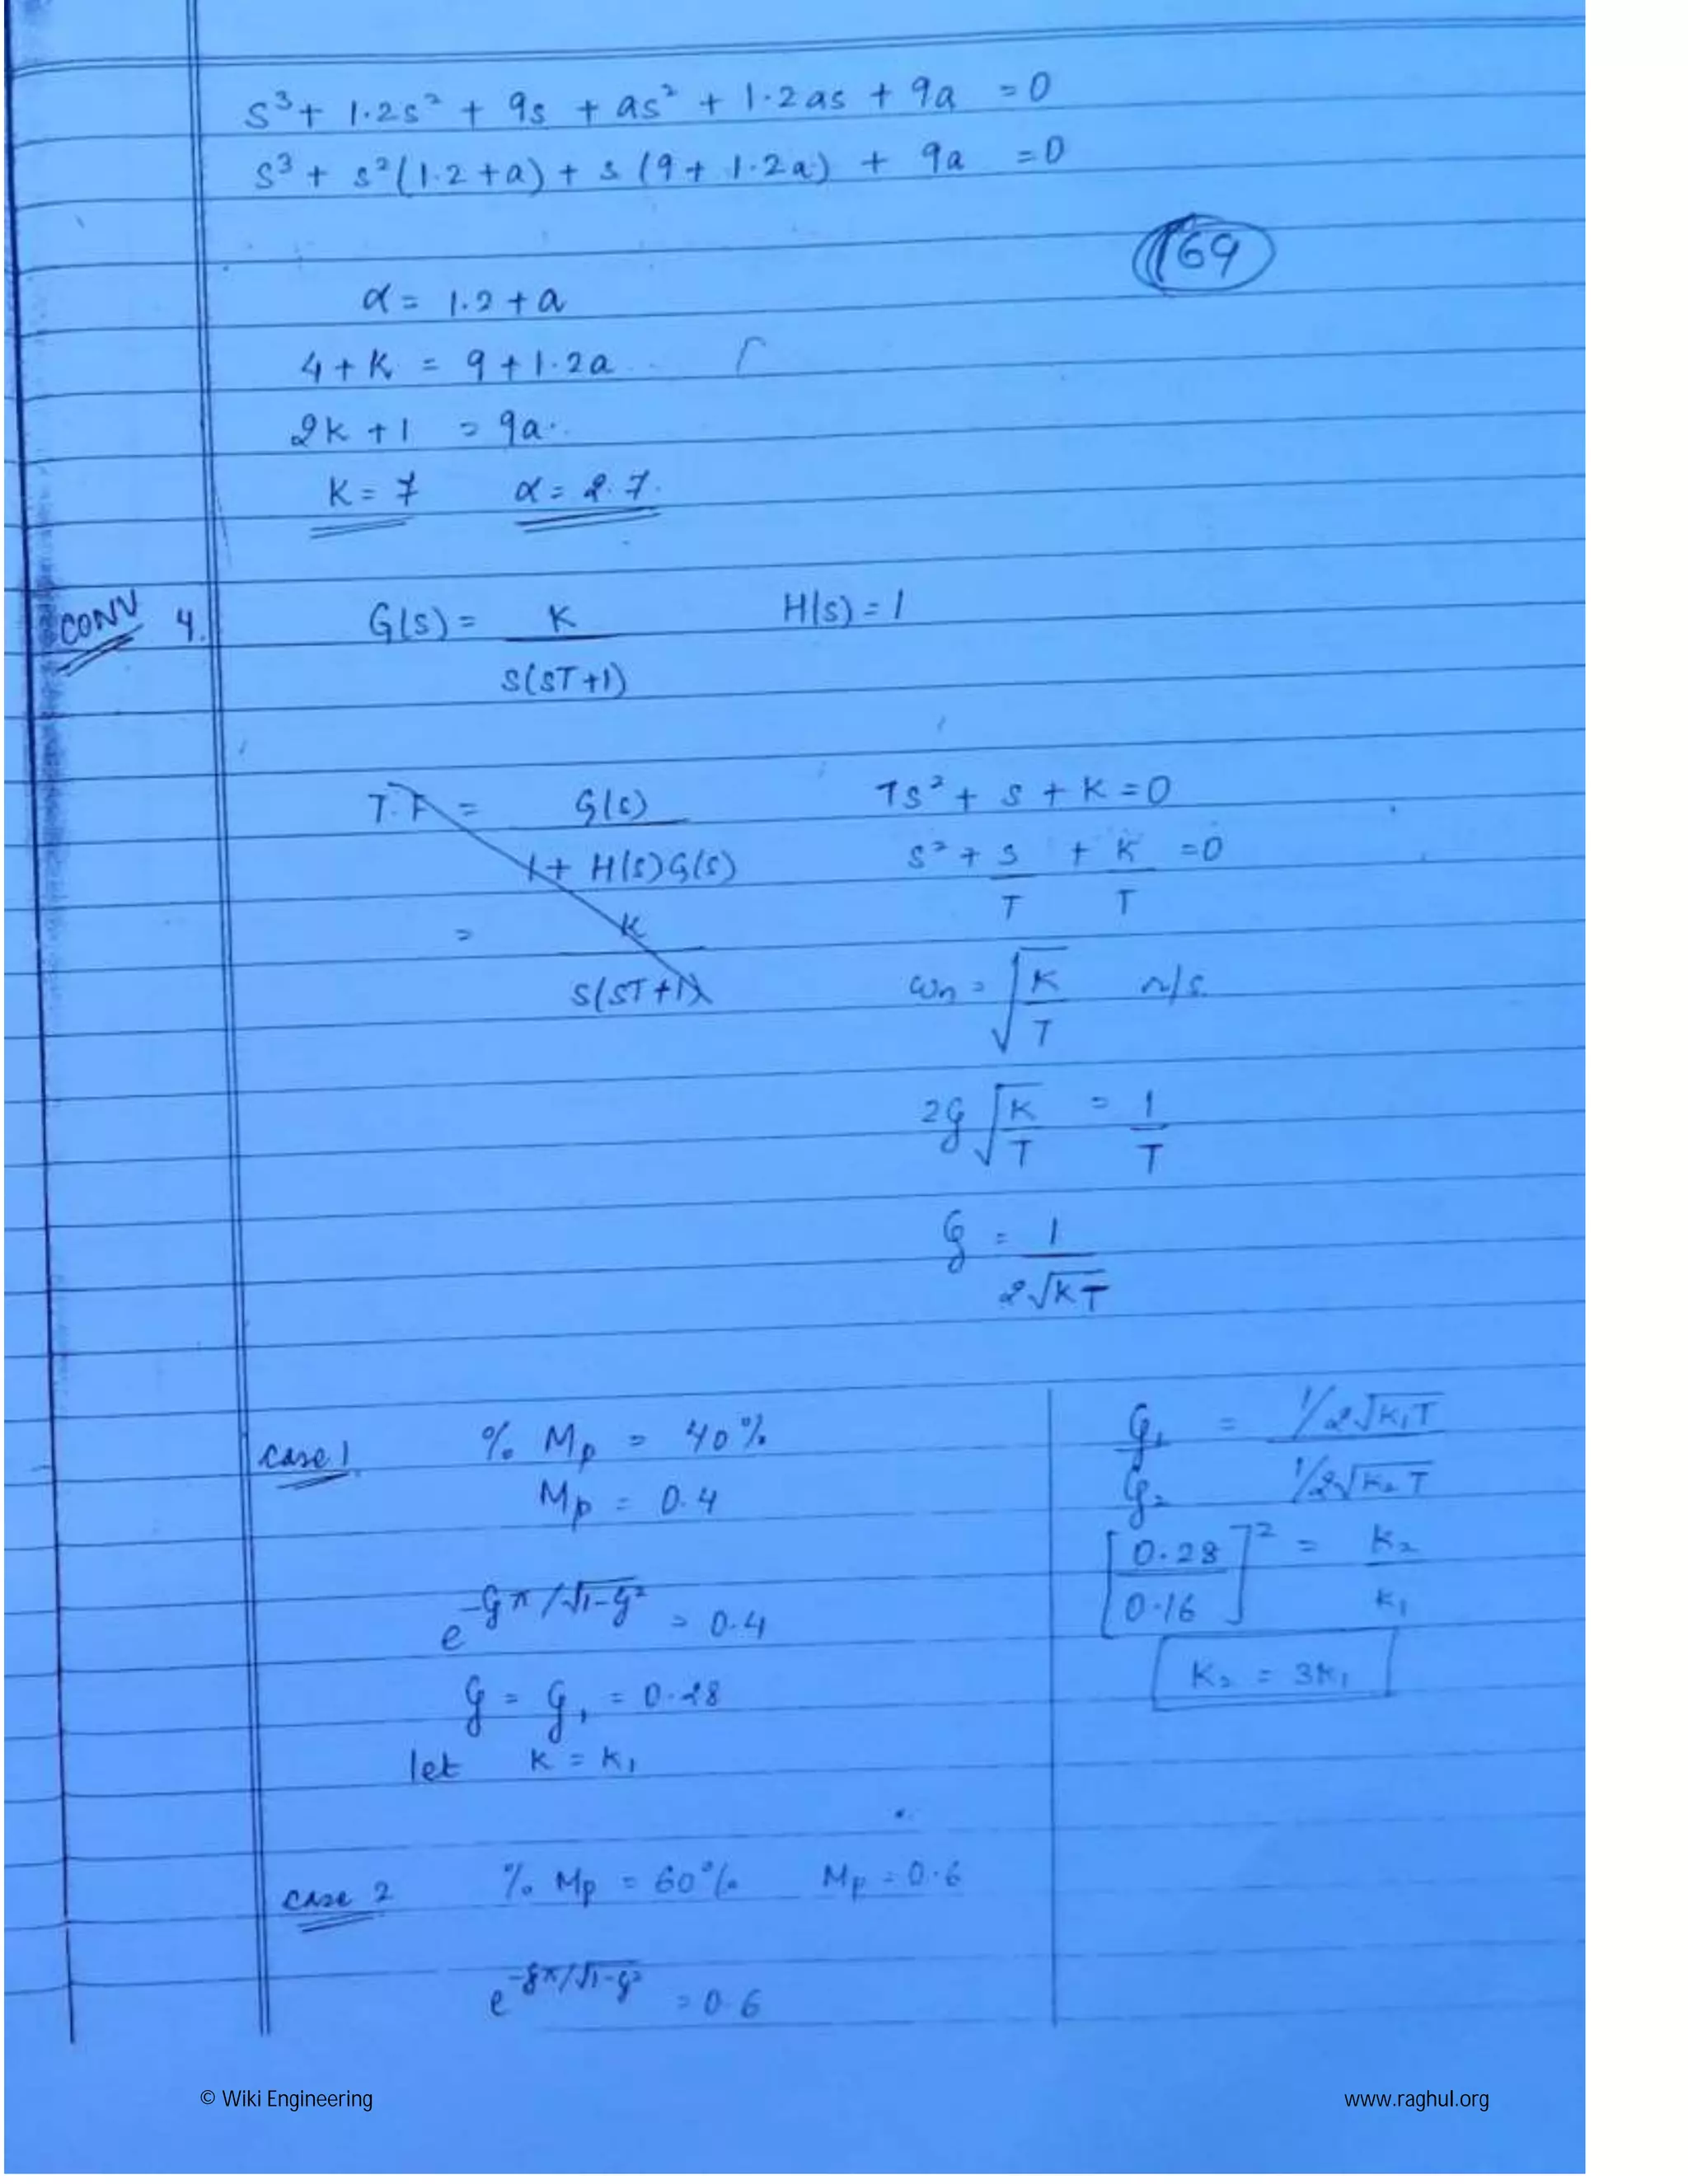 s³ + 1.2s² + 9s + as² + 1.2as + 9a = 0
s³ + s²(1.2+a) + s(9+1.2a) + 9a = 0
169
α = 1.2 + a
4 + K = 9 + 1.2a
2K + 1 = 9a
K = 7 α = 2.7
CONV 4. G(s) = K / s(sT+1) H(s) = 1
T.F = G(s) / 1 + H(s)G(s)
= K / s(sT+1)
Ts² + s + K = 0
s² + s/T + K/T = 0
ωn = √(K/T) r/s
2ζ√(K/T) = 1/T
ζ = 1 / 2√KT
case 1 % Mp = 40%
Mp = 0.4
e^(-ζπ/√1-ζ²) = 0.4
ζ = ζ₁ = 0.28
let K = K₁
case 2 % Mp = 60% Mp = 0.6
e^(-ζπ/√1-ζ²) = 0.6
ζ₁/ζ₂ = (1/2√K₁T) / (1/2√K₂T)
[0.28/0.16]² = K₂/K₁
K₂ = 3K₁
© Wiki Engineering www.raghul.org